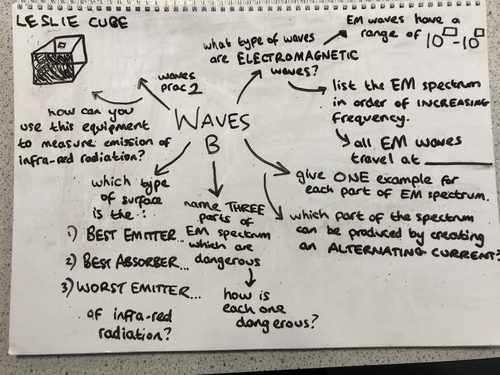 LESLIE CUBE
how can you
use this equipment
to measure emission of
infra-red radiation?
waves
prac 2
what type of waves
are ELECTROMAGNETIC
waves?
EM waves have a
range of 10 - 10
WAVES
B
list the EM spectrum
in order of INCREASING
frequency.
all EM waves
travel at ________
give ONE example for
each part of EM spectrum.
which part of the spectrum
can be produced by creating
an ALTERNATING CURRENT?
name THREE
parts of
EM spectrum
which are
dangerous
how is
each one
dangerous?
which type
of surface
is the:
1) BEST EMITTER...
2) BEST ABSORBER...
3) WORST EMITTER...
of infra-red
radiation?